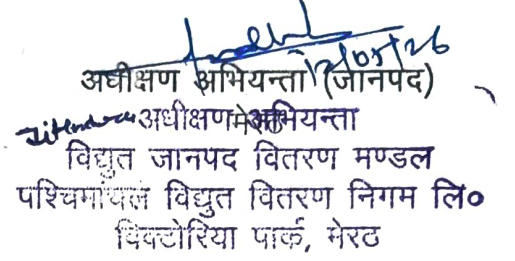 12/05/26
अधीक्षण अभियन्ता (जानपद)
मेरठ
Jitendra
अधीक्षण अभियन्ता
विद्युत जानपद वितरण मण्डल
पश्चिमांचल विद्युत वितरण निगम लि०
विक्टोरिया पार्क, मेरठ